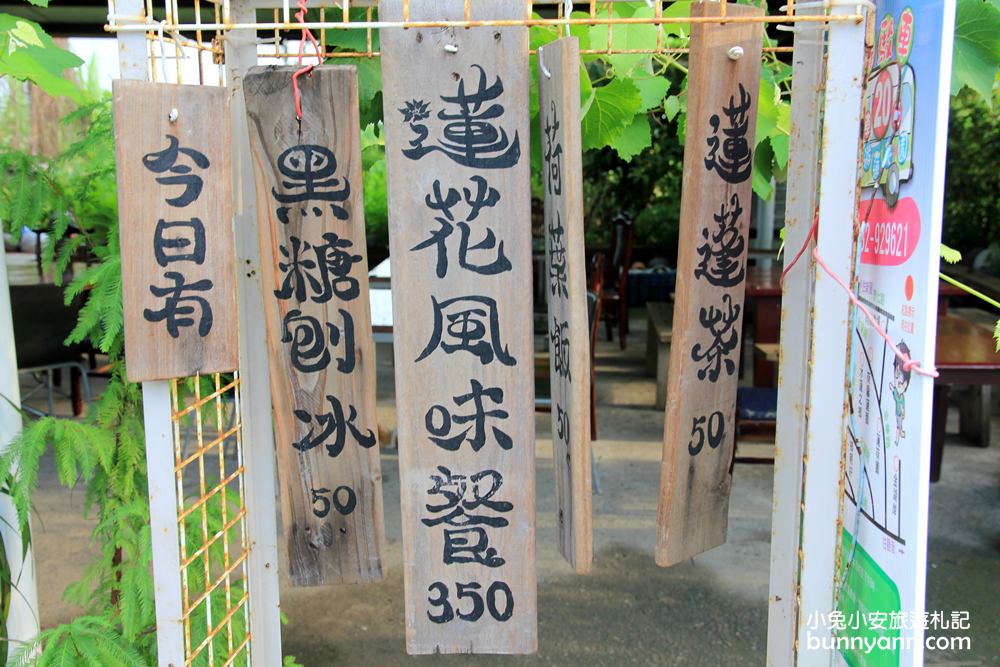 今日有
黑糖刨冰
50
蓮花風味餐
350
荷葉飯 50
蓮蓬茶
50
20
2-929621
小兔小安旅遊札記
bunnyann.cc